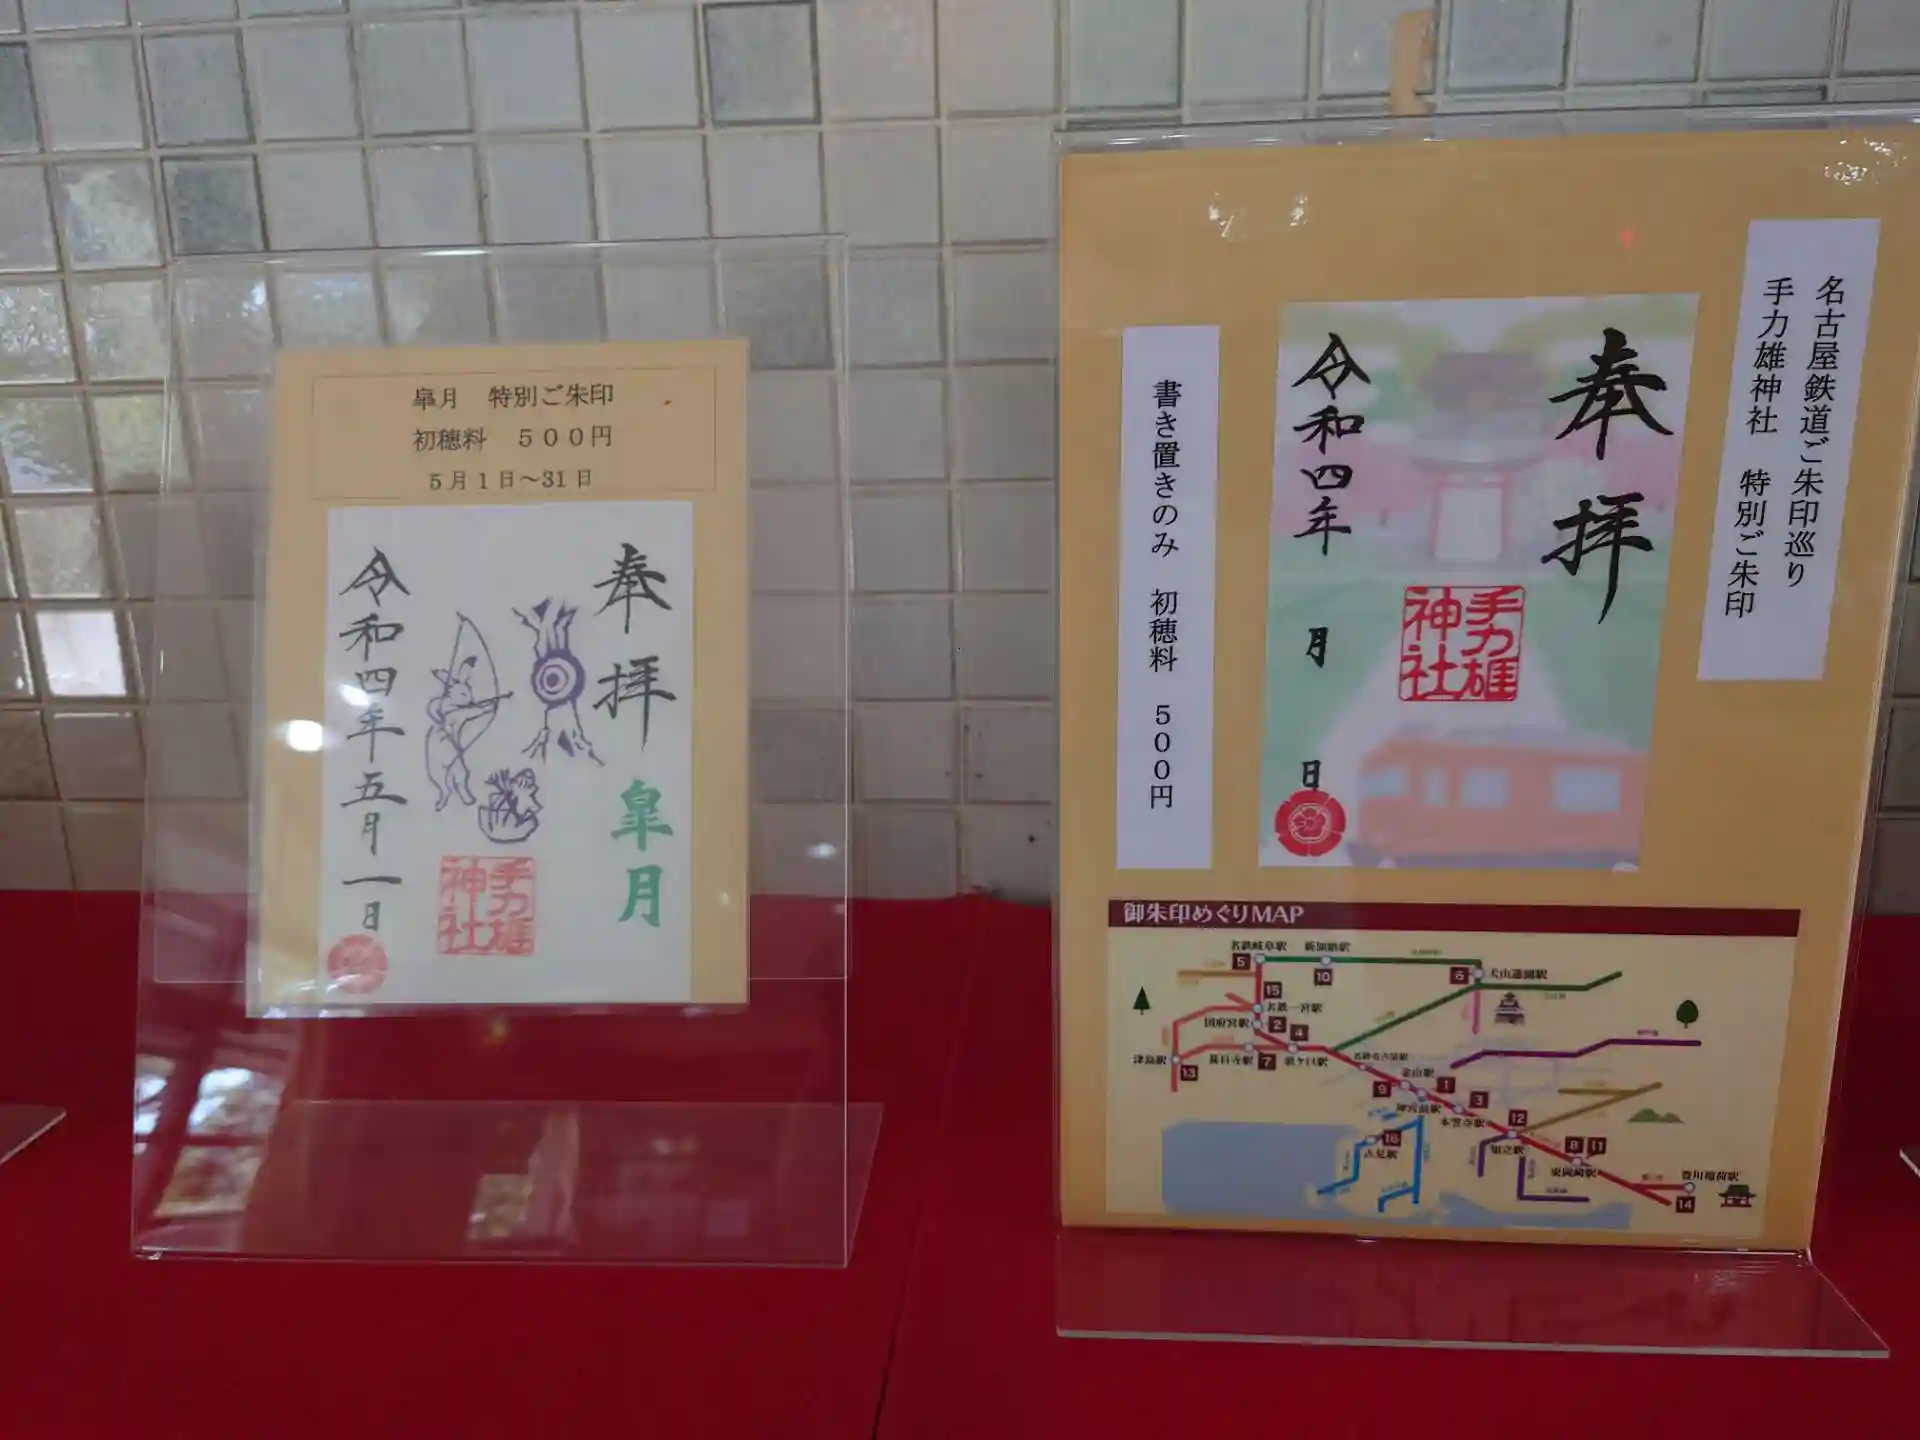 皐月　特別ご朱印
初穂料　５００円
５月１日～31日
奉拝
皐月
手力雄
神社
令和四年五月一日
名古屋鉄道ご朱印巡り
手力雄神社　特別ご朱印
奉拝
手力雄
神社
令和四年　月　日
書き置きのみ　初穂料　５００円
御朱印めぐりMAP
名鉄岐阜駅
5
新加納駅
10
6
犬山遊園駅
15
名鉄一宮駅
国府宮駅
2
4
津島駅
13
甚目寺駅
7
須ケ口駅
名鉄名古屋駅
金山駅
9
1
神宮前駅
3
本笠寺駅
12
知立駅
16
古見駅
8
11
東岡崎駅
豊川稲荷駅
14